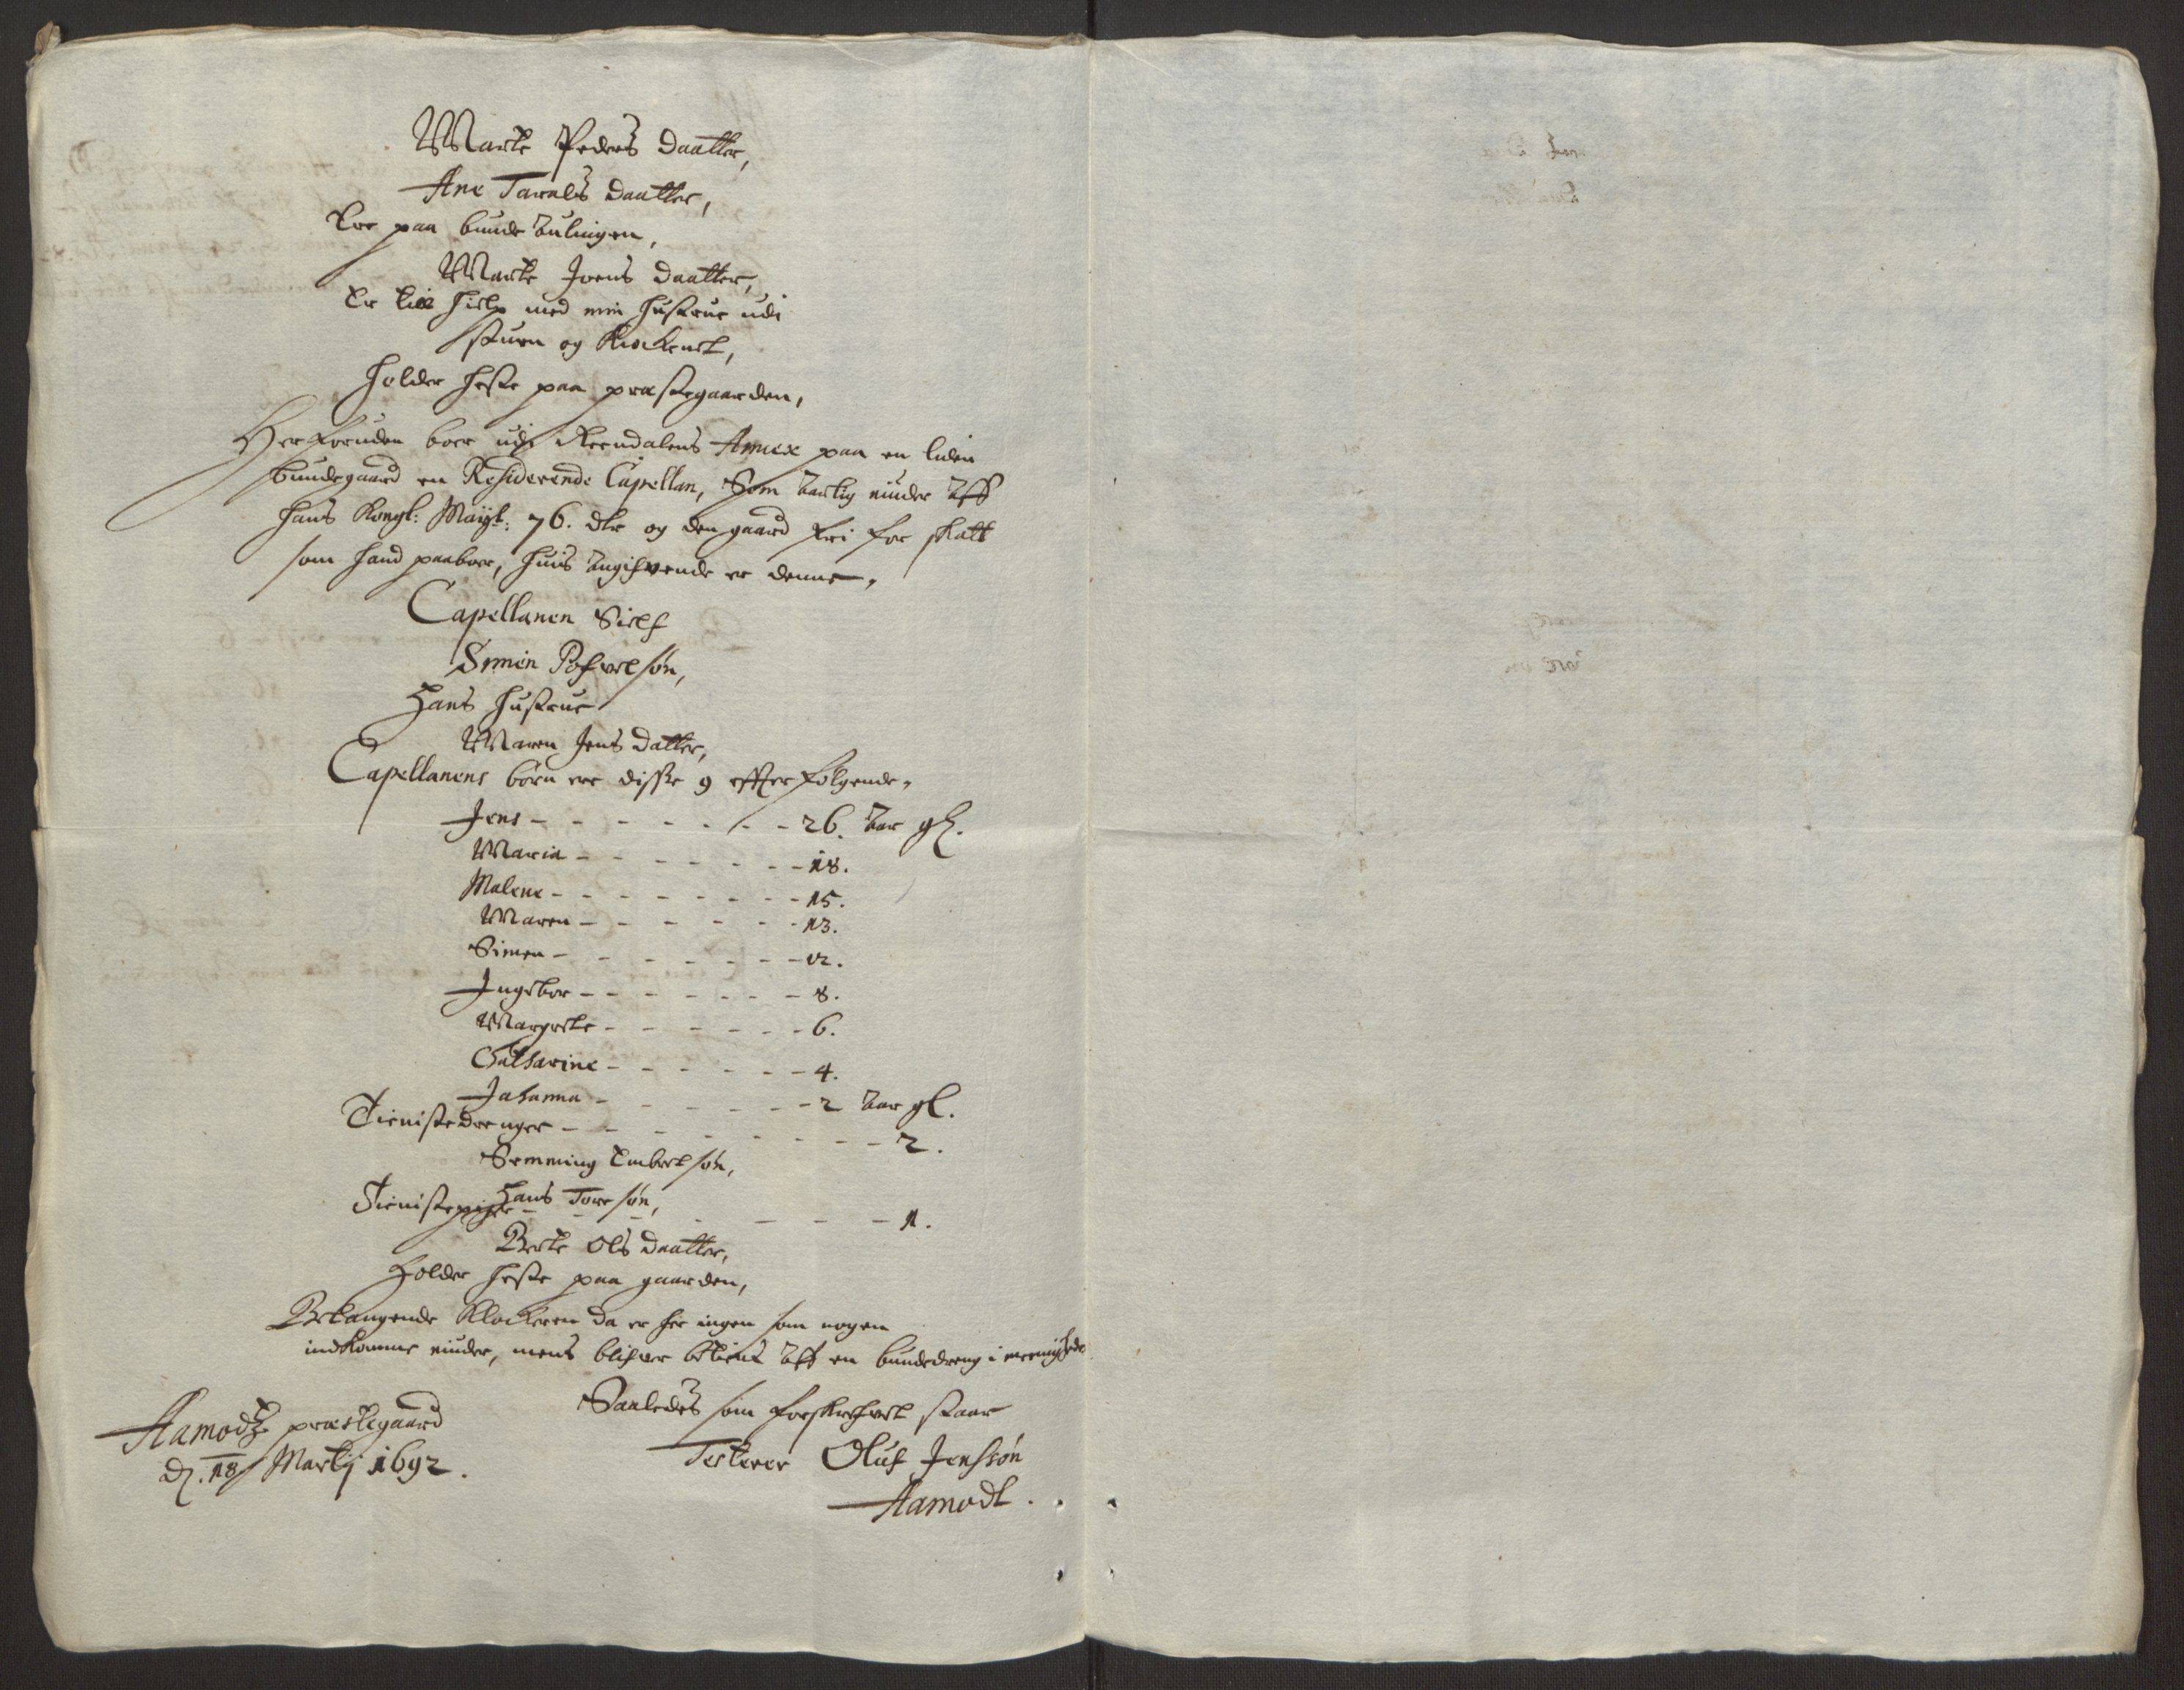 Marte Peders daatter,
Ane Tarals daatter,
Ere paa bunde
Marte Joens daatter,
Er til hielp med min hustrue udi
stuen og Kiockenet,
holder heste paa præstegaarden,
Herforuden boer udj Reendalens Annex paa en liden
bundegaard en Residerende Capellan, Som aarlig niuder aff
hans Kongl: Mayt: 76. dlr og den gaard fri for skatt
som hand paaboer, huis angifvende er denne,
Capellanen Sielf
Simen Pofvelsøn,
Hans hustrue
Maren Jens datter,
Capellanens børn ere disse 9 effterfølgende,
Jens - - - - - - - 26. aar gl.
Maria - - - - - - - 18.
Malene - - - - - - - 15.
Maren - - - - - - 13.
Simen - - - - - - - 12.
Ingebor - - - - - - - 8.
Margrete - - - - - - 6.
Catharine - - - - - - 4.
Johanna - - - - - - 2 aar gl.
Tienistedrenger - - - - - - - - 2.
Semming Embretsøn,
Hans Toresøn,
Tienistepige - - - - - - - 1.
Berte Ols daatter,
Holder heste paa gaarden,
Belangende Klockeren da er her ingen som nogen
indkomme niuder, mens blifver betient aff en bundedreng i meenighede
Saaledes som forskrefvet staar
Aamodtz præstegaard
d. 18 Martij 1692.
Testerer Oluf Jenssøn
Aamodt.